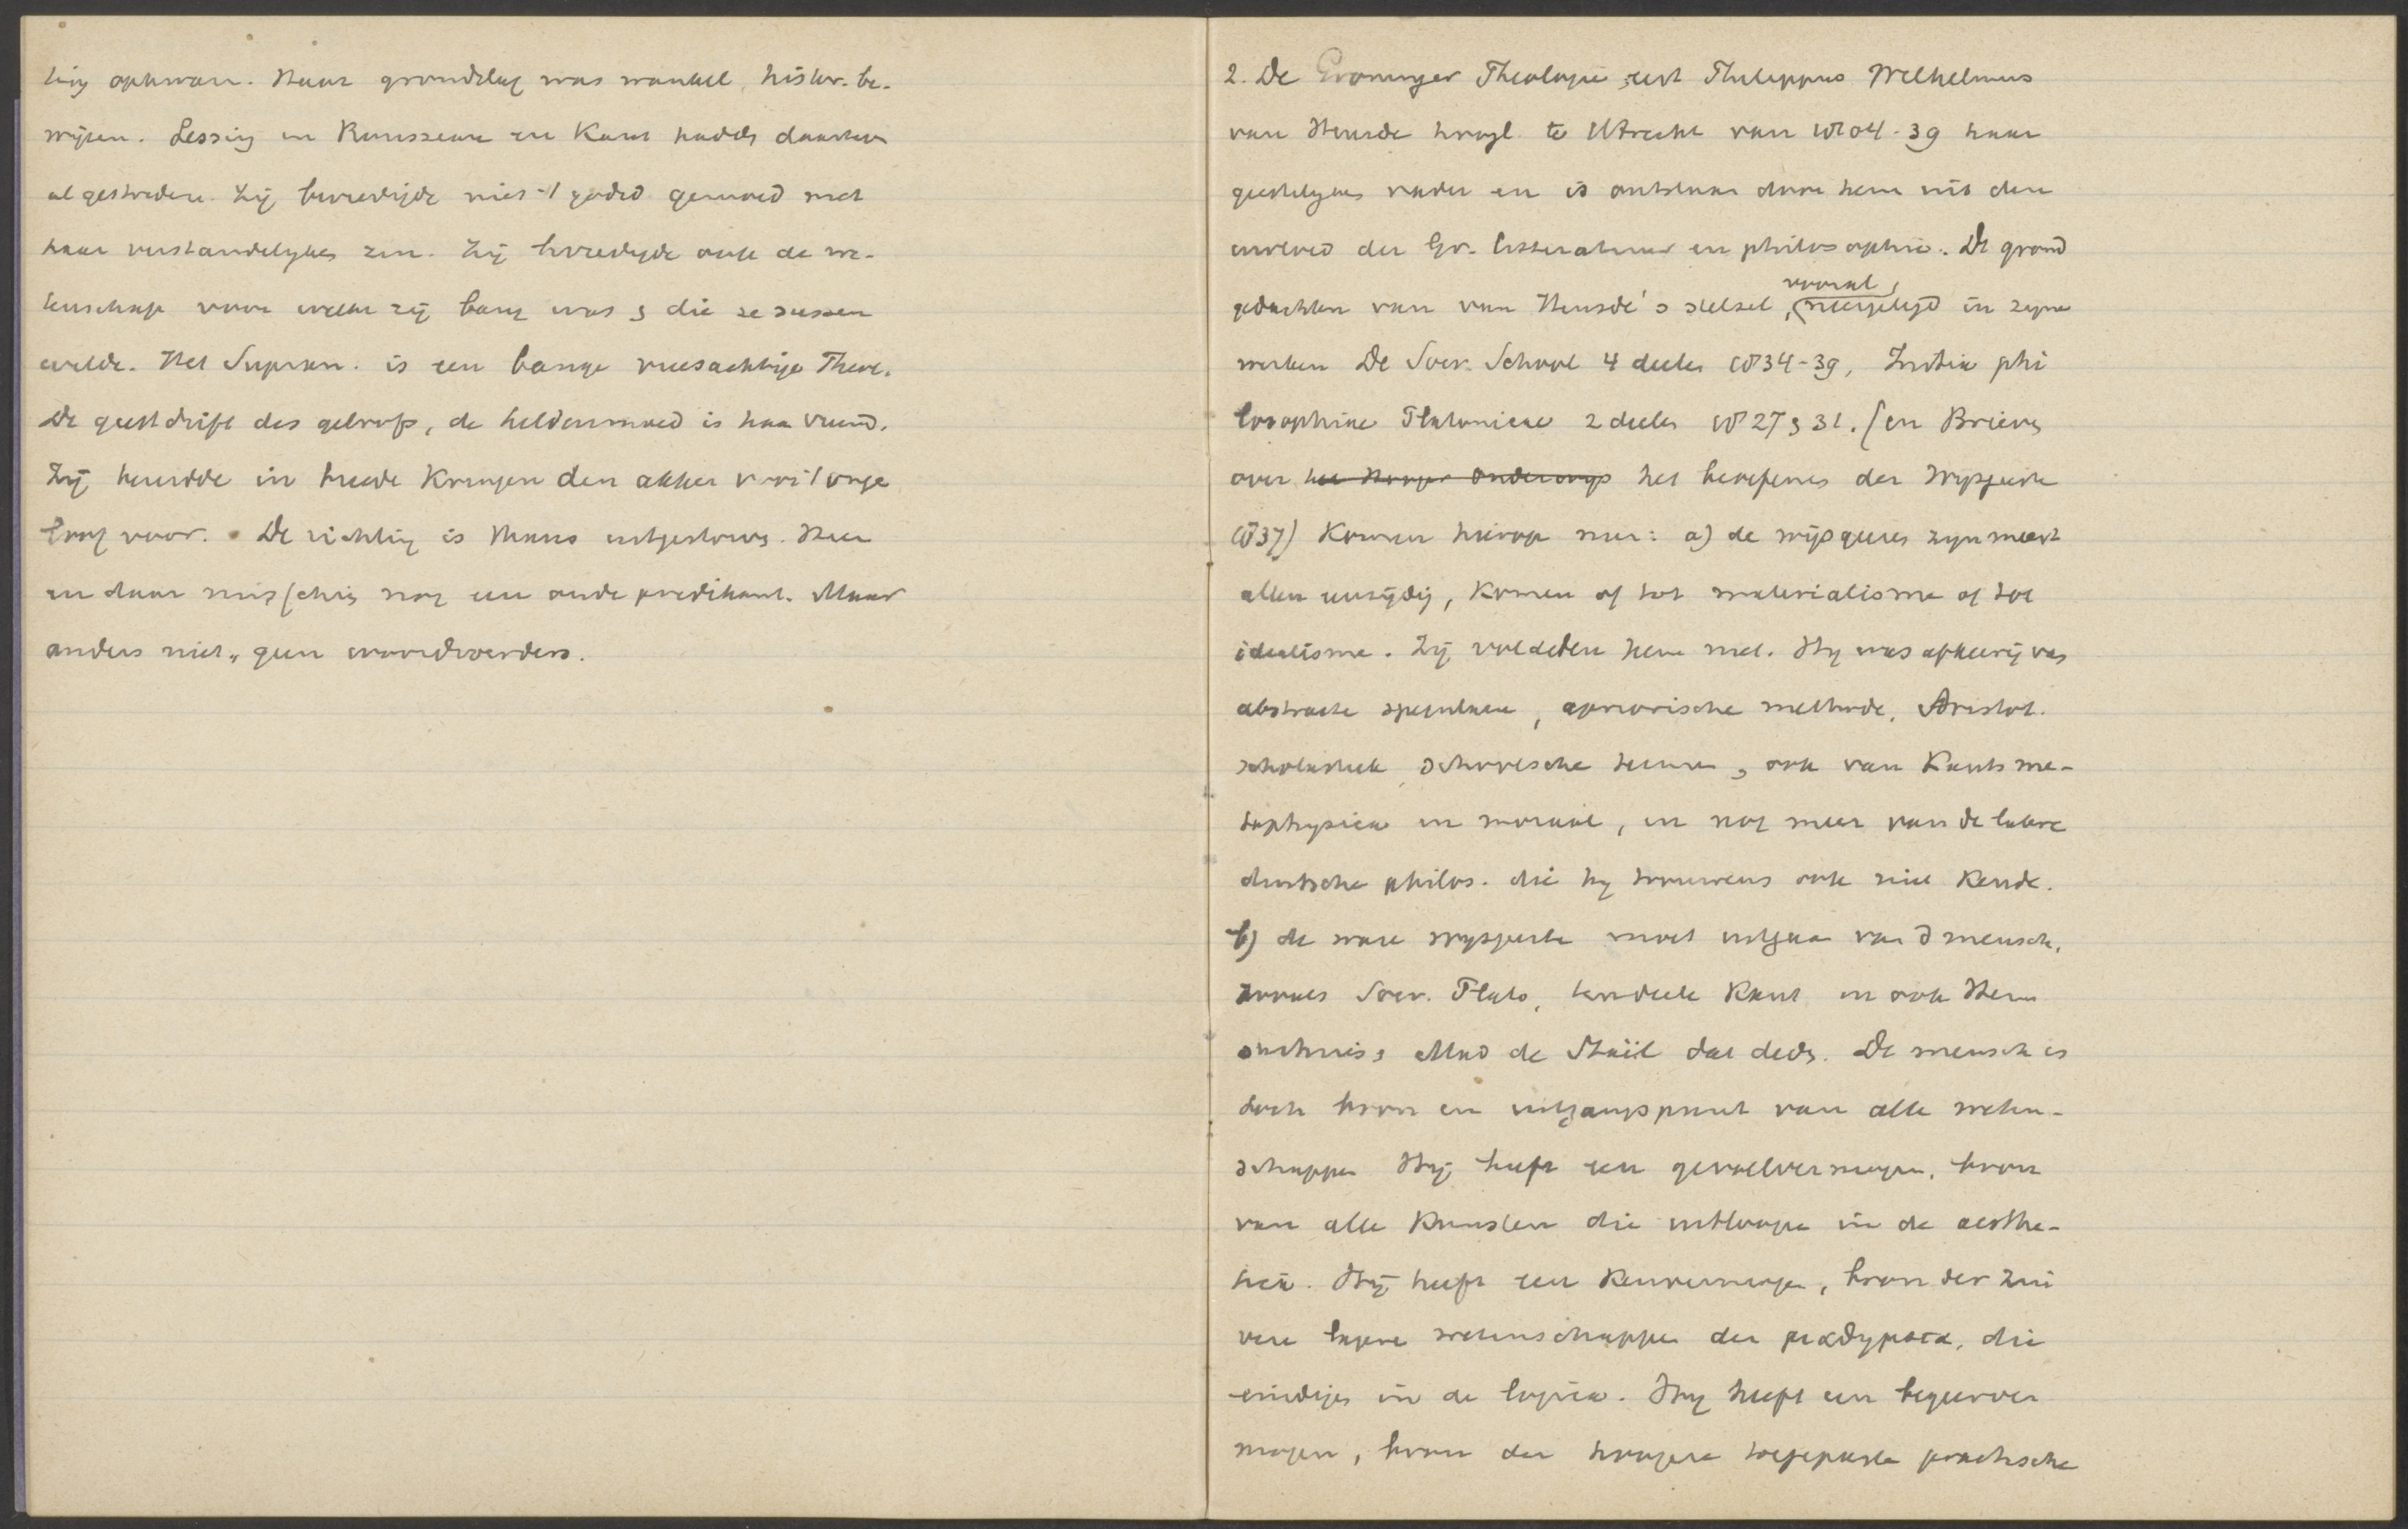 ting opkwam. Haar grondslag was wankel, histor. be-
wijzen. Lessing en Rousseau en Kant hadden daartegen
al gestreden. Zij bevredigde niet 't godsd. gemoed met
haar verstandelyken zin. Zij bevredigde ook de we-
tenschap voor welke zij bang was & die ze sussen
wilde. Het Supran. is een bange vreesachtige Theol.
De geestdrift des geloofs, de heldenmoed is haar vreemd.
Zij bereidde in breede Kringen den akker voor 't onge
loof voor. De richting is thans uitgestorven. Hier
en daar misschien nog een oude predikant. Maar
anders niet, geen woordvoerders.
2. De Groninger Theologie eert Philippus Wilhelmus
van Heusde hoogl. te Utrecht van 1804-39 haar
geestelyken vader en is ontstaan door hem uit den
invloed der Gr. litteratuur en philosophie. De grond
gedachten van van Heusde's stelsel, (vooral, neergelegd in zyne
werken De Socr. School 4 deelen 1834-39, Initia phi
losophiae Platonicae 2 deelen 1827 & 31. (en Brieven
over het Hooger Onderwijs het beoefenen der Wysgeerte
1837) Komen hierop neer: a) de wijsgeeren zyn meest
allen eenzijdig, komen of tot materialisme of tot
idealisme. Zij voldeden hem niet. Hy was afkeerig van
abstracte speculatie, apriorische methode, Aristot.
scholastiek, schoolsche termen, ook van Kants me-
taphysica en moraal, en nog meer van de latere
duitsche philos. die hy trouwens ook niet kende.
b) de ware wysgeerte moet uitgaan van d mensch,
zooals Socr. Plato, ten deele Kant en ook Hem
sterhuis & Mad de Staël dat deden. De mensch is
toch bron en uitgangspunt van alle weten-
schappen Hij heeft een gevoelvermogen, bron
van alle Kunsten die uitloopen in de aesthe-
tica. Hij heeft een Kenvermogen, bron der zui
vere lagere wetenschappen der μαθηματα, die
eindigen in de logica. Hy heeft een begeerver
mogen, bron der hoogere toegepaste practische